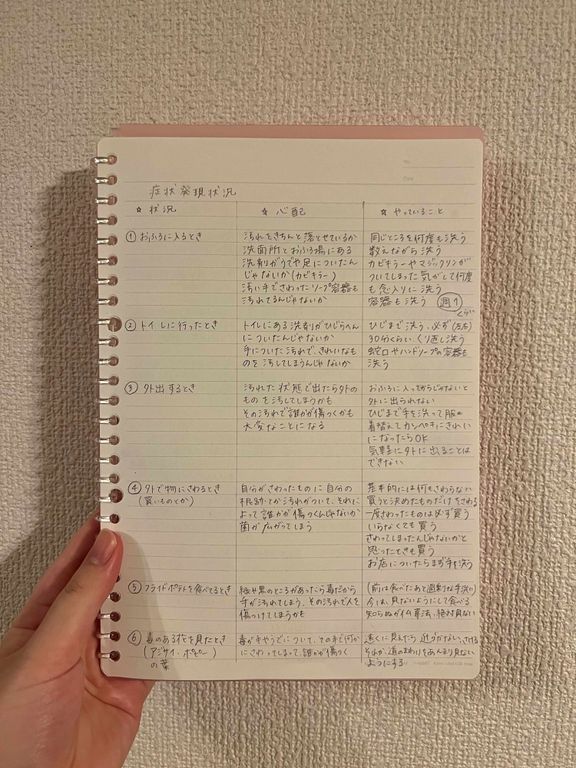 症状発現状況
☆ 状況
☆ 心配
☆ やっていること
① おふろに入るとき
汚れをきちんと落とせているか
洗面所とおふろ場にある
洗剤がうでや足についたん
じゃないか(カビキラー)
汚い手でさわったソープ容器も
汚れてるんじゃないか
同じところを何度も洗う
数えながら洗う
カビキラーやマジックリンが
ついてしまった気がして何度
も念入りに洗う
容器も洗う 週1
くらい
② トイレに行ったとき
トイレにある洗剤がひじらへんに
についたんじゃないか
手についた汚れで、きれいなも
のを汚してしまうんじゃないか
ひじまで洗う、必ず(左右)
30分くらい、くり返し洗う
蛇口やハンドソープの容器も
洗う
③ 外出するとき
汚れた状態で出たら外の
ものを汚してしまうかも
その汚れで誰かが傷つくかも
大変なことになる
おふろに入ってからじゃないと
外に出られない
ひじまで手を洗って服も
着替えてカンペキにきれい
になったらOK
気軽に外に出ることは
できない
④ 外で物にさわるとき
(買いものとか)
自分がさわったものに自分の
汚れがついて、それに
よって誰かが傷つくんじゃないか
菌が広がってしまう
基本的には何もさわらない
買うと決めたものだけをさわる
一度さわったものは必ず買う
いらなくても買う
さわってしまったんじゃないかと
思ったときも買う
お店についたらまず手を洗う
⑤ フライドポテトを食べるとき
緑や黒のところがあったら毒だから
手が汚れてしまう、その汚れで人を
傷つけてしまうかも
(前は食べたあと過剰な手洗い)
今は、見ないようにして食べる
知らぬが仏算法、絶対見ない
⑥ 毒のある花を見たとき
(アジサイ・ポピー)
の葉
毒が手やうでについて、その手で何か
にさわってしまって、誰かが傷つく
遠くに見えたら、近づかない、さける
それか、道のまわりをあんまり見ない
ようにする